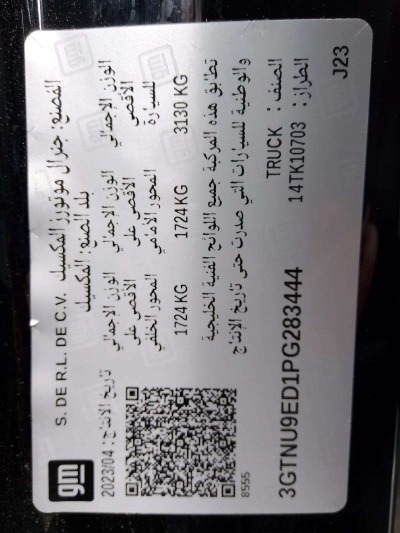 gm
المصنع: جنرال موتورز المكسيك
S. DE R.L. DE C.V.
بلد الصنع: المكسيك
تاريخ الإنتاج: 2023/04
الوزن الإجمالي الأقصى للسيارة
3130 KG
الوزن الإجمالي الأقصى على المحور الأمامي
1724KG
الوزن الإجمالي الأقصى على المحور الخلفي
1724KG
تطابق هذه المركبة جميع اللوائح الفنية الخليجية
والوطنية للسيارات التي صدرت حتى تاريخ الإنتاج
8555
الصنف: TRUCK
الطراز: 14TK10703
3GTNU9ED1PG283444
J23